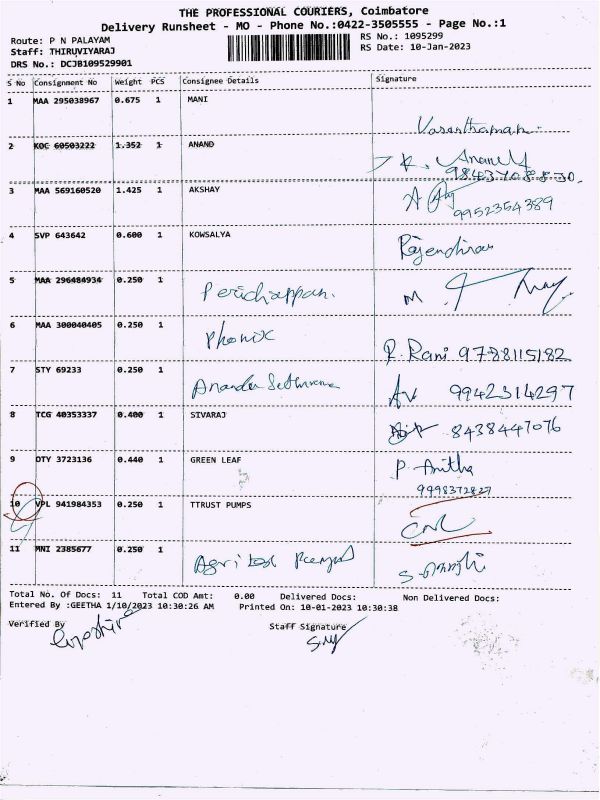 THE PROFESSIONAL COURIERS, Coimbatore
Delivery Runsheet - MO - Phone No.:0422-3505555 - Page No.:1
Route: P N PALAYAM
Staff: THIRUVIYARAJ
DRS No.: DCJB109529901
RS No.: 1095299
RS Date: 10-Jan-2023
S No Consignment No Weight PCS Consignee Details Signature
1 MAA 295038967 0.675 1 MANI
Vasanthamani
2 KOC 60503222 1.352 1 ANAND
K. Anand
9843708830.
3 MAA 569160520 1.425 1 AKSHAY
9952354389
4 SVP 643642 0.600 1 KOWSALYA Rajendiran
5 MAA 296484934 0.250 1 Perichappan. M
6 MAA 300040405 0.250 1 Phonix R. Rani 9788115182
7 STY 69233 0.250 1 9942314297
8 TCG 40353337 0.400 1 SIVARAJ 8438447076
9 DTY 3723136 0.440 1 GREEN LEAF P. Anitha
9998372827
10 VPL 941984353 0.250 1 TTRUST PUMPS
11 MNI 2385677 0.250 1
Total No. Of Docs: 11 Total COD Amt: 0.00 Delivered Docs: Non Delivered Docs:
Entered By :GEETHA 1/10/2023 10:30:26 AM Printed On: 10-01-2023 10:30:38
Verified By Staff Signature